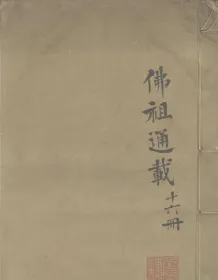 佛祖通載
十六冊